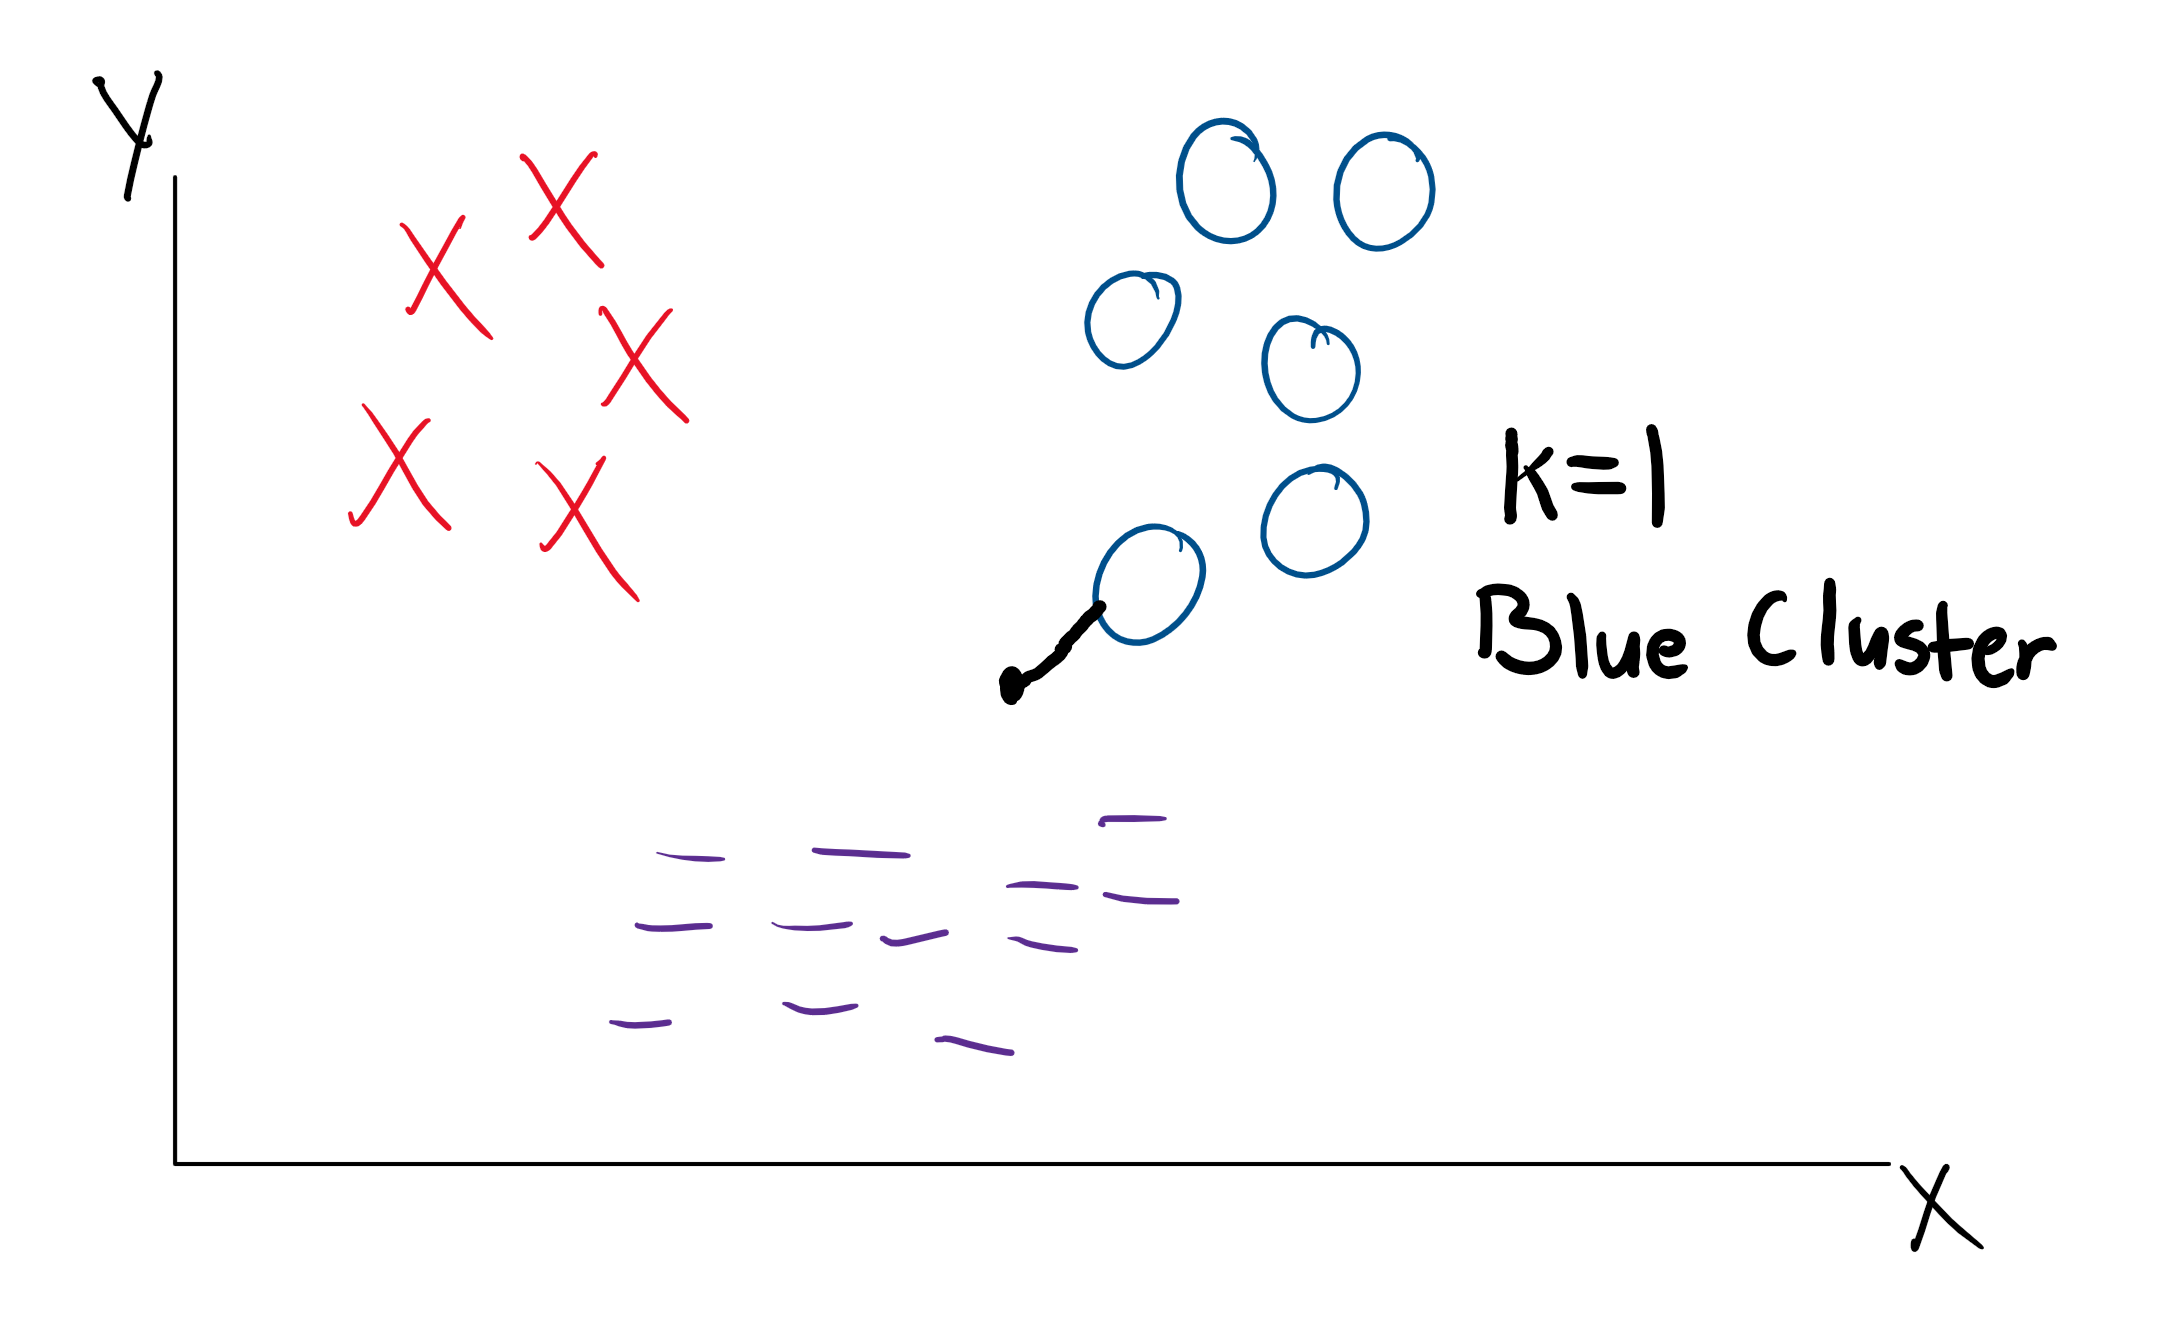 Y
k=1
Blue Cluster
X